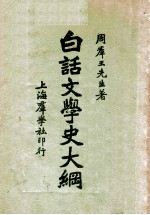 周羣玉先生著
白話文學史大綱
上海羣學社印行